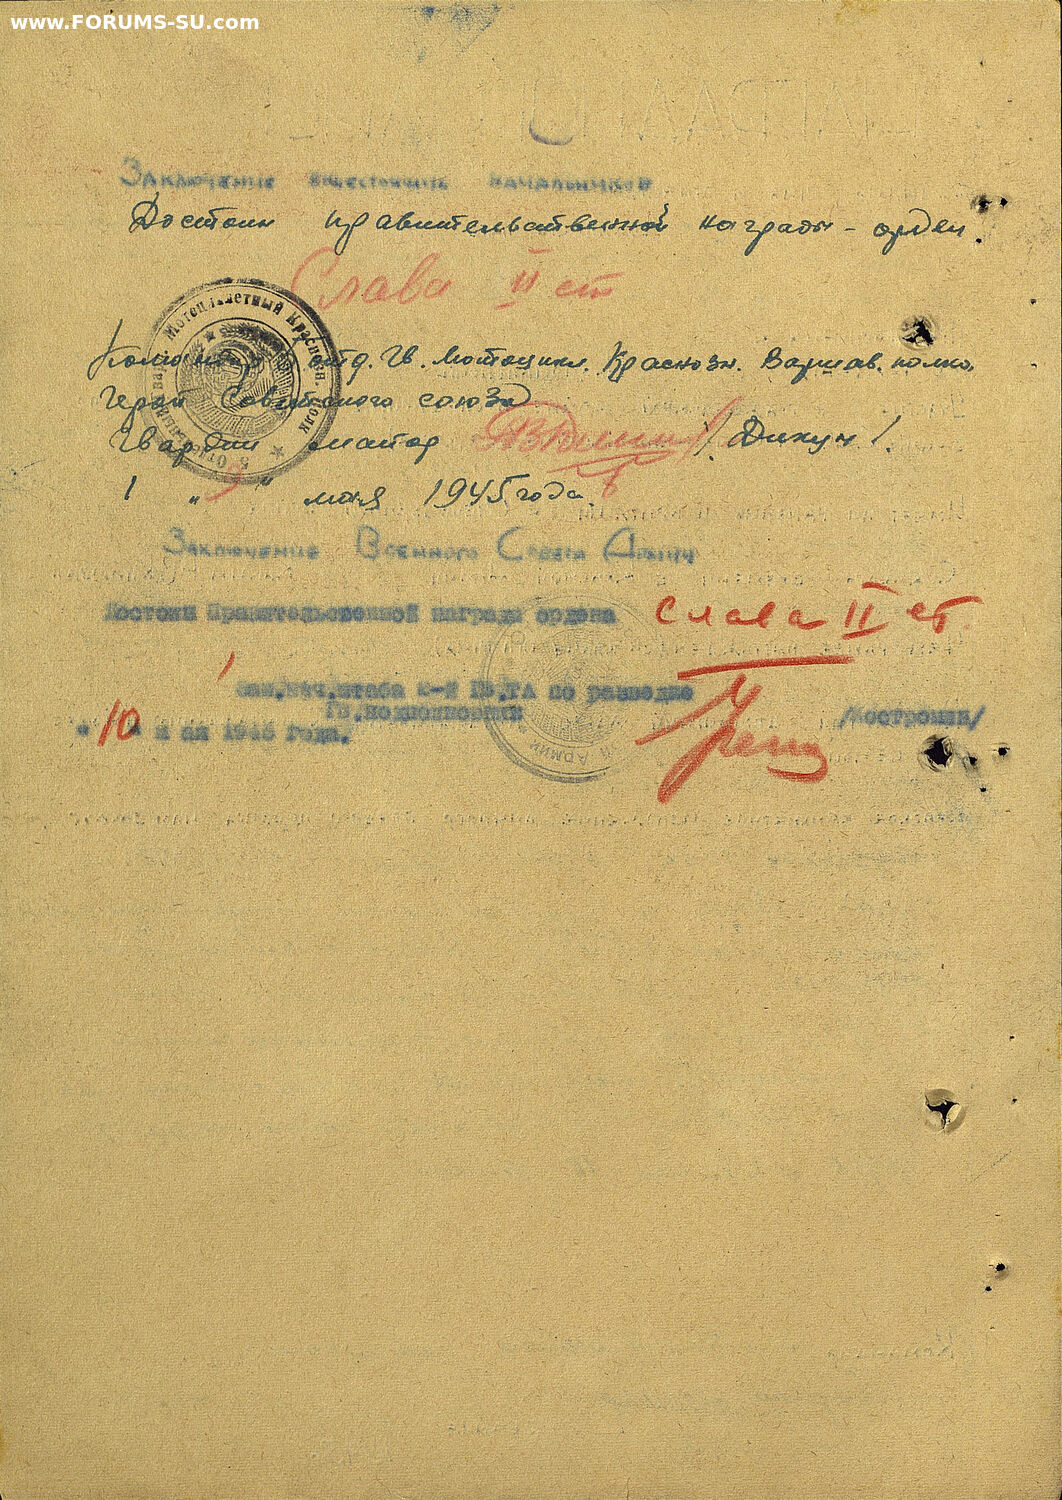 www.FORUMS-SU.com
Заключение вышестоящих начальников
Достоин правительственной награды - орден
Слава II ст
отд. Гв. мотоцикл. Краснозн. Варшав. полка,
Герой Советского союза
Гвардии майор /Дикун/
„9" мая 1945 года.
Мотоциклетный Краснозн. полк
Заключение Военного Совета Армии
Достоин Правительственной награды ордена Слава II ст.
Зам.нач.штаба 2-й Гв.ТА по разведке
Гв.подполковник /Костромин/
"10" мая 1945 года.